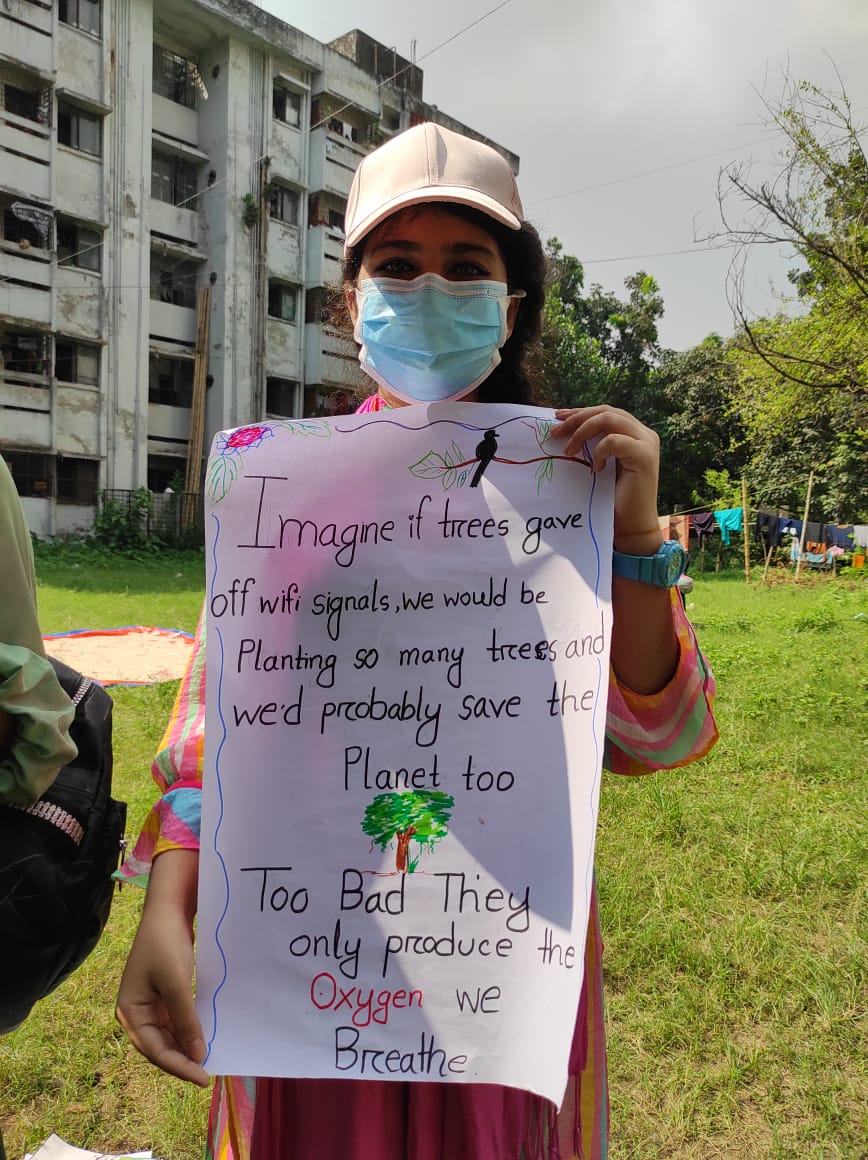 Imagine if trees gave
off wifi signals, we would be
Planting so many trees and
we'd probably save the
Planet too
Too Bad They
only produce the
Oxygen we
Breathe.